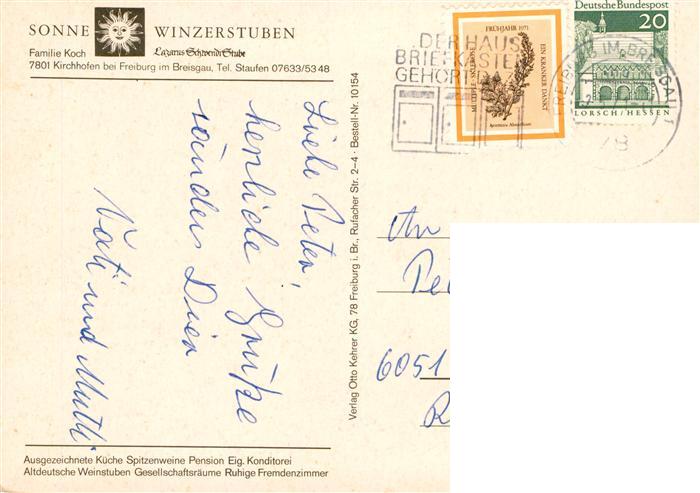 SONNE WINZERSTUBEN
Familie Koch Lazarus Schwendi Stube
7801 Kirchhofen bei Freiburg im Breisgau, Tel. Staufen 07633/5348
Liebe Peter,
herzliche Grüße
senden Dir
Vati und Mutti
Ausgezeichnete Küche Spitzenweine Pension Eig. Konditorei
Altdeutsche Weinstuben Gesellschaftsräume Ruhige Fremdenzimmer
Verlag Otto Kehrer KG, 78 Freiburg i. Br., Rufacher Str. 2–4 · Bestell-Nr. 10154
DER HAUS
BRIEFKASTEN
GEHÖRT
FRÜHJAHR 1971
MULTIPLE SKLEROSE
EIN KRANKER DANKT
Deutsche Bundespost
20
LORSCH/HESSEN
FREIBURG IM BREISGAU 1
78
6051